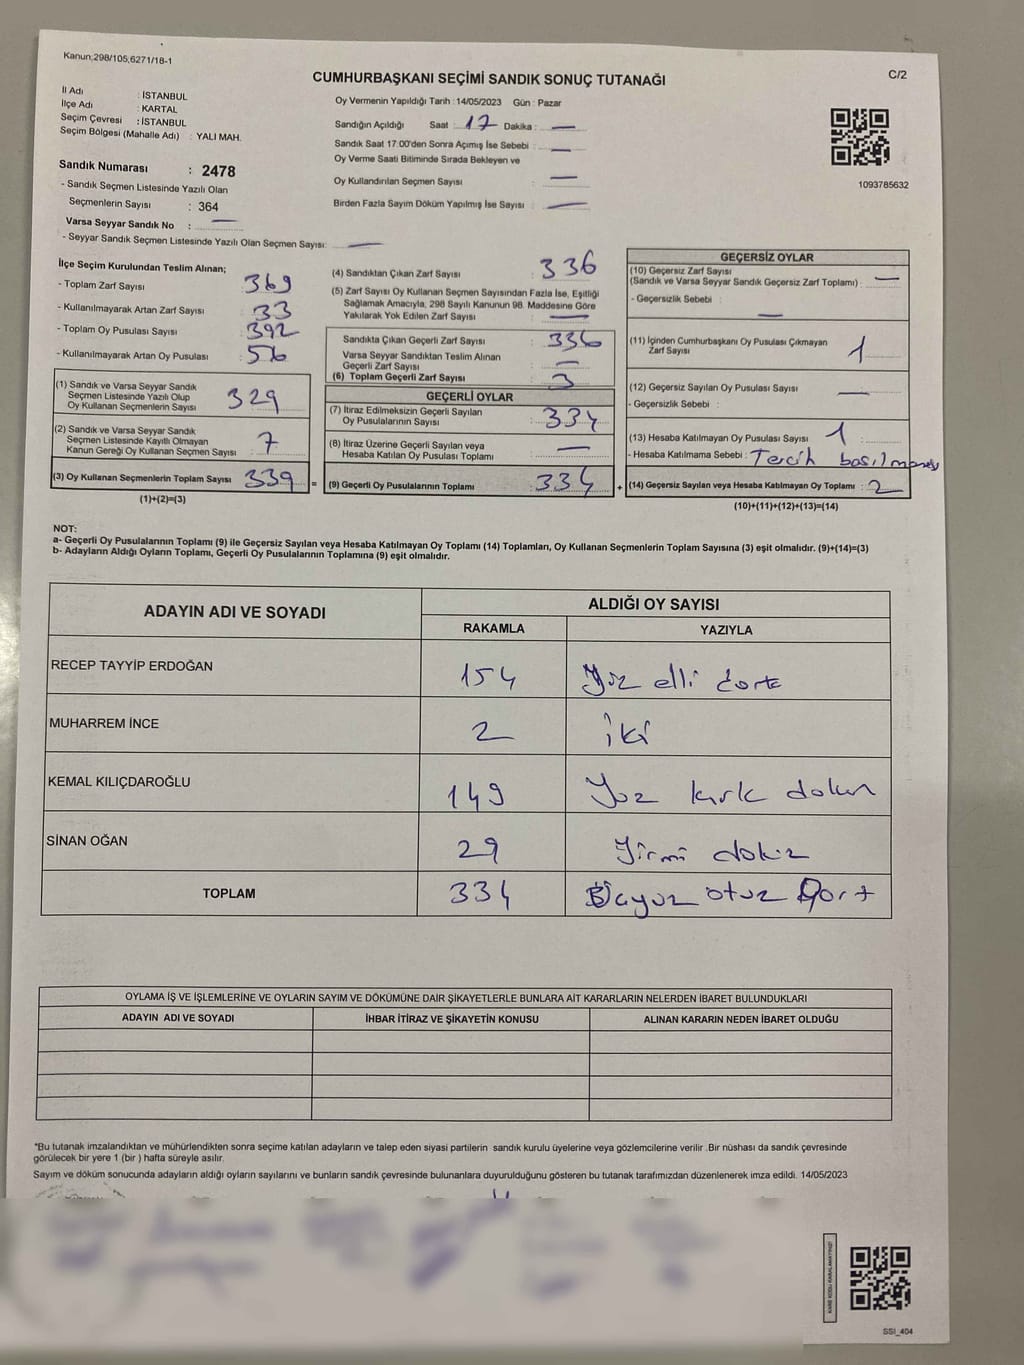 Kanun;298/105,6271/18-1
C/2
CUMHURBAŞKANI SEÇİMİ SANDIK SONUÇ TUTANAĞI
İl Adı : İSTANBUL
İlçe Adı : KARTAL
Seçim Çevresi : İSTANBUL
Seçim Bölgesi (Mahalle Adı) : YALI MAH.
Sandık Numarası : 2478
- Sandık Seçmen Listesinde Yazılı Olan
Seçmenlerin Sayısı : 364
Varsa Seyyar Sandık No : —
- Seyyar Sandık Seçmen Listesinde Yazılı Olan Seçmen Sayısı: —
Oy Vermenin Yapıldığı Tarih : 14/05/2023 Gün : Pazar
Sandığın Açıldığı Saat : 17 Dakika : —
Sandık Saat 17.00'den Sonra Açımış İse Sebebi : —
Oy Verme Saati Bitiminde Sırada Bekleyen ve
Oy Kullandırılan Seçmen Sayısı : —
Birden Fazla Sayım Döküm Yapılmış İse Sayısı : —
1093785632
İlçe Seçim Kurulundan Teslim Alınan;
- Toplam Zarf Sayısı : 369
- Kullanılmayarak Artan Zarf Sayısı : 33
- Toplam Oy Pusulası Sayısı : 392
- Kullanılmayarak Artan Oy Pusulası :
(1) Sandık ve Varsa Seyyar Sandık
Seçmen Listesinde Yazılı Olup
Oy Kullanan Seçmenlerin Sayısı : 329
(2) Sandık ve Varsa Seyyar Sandık
Seçmen Listesinde Kayıtlı Olmayan
Kanun Gereği Oy Kullanan Seçmen Sayısı : 7
(3) Oy Kullanan Seçmenlerin Toplam Sayısı : 339
(1)+(2)=(3)
(4) Sandıktan Çıkan Zarf Sayısı : 336
(5) Zarf Sayısı Oy Kullanan Seçmen Sayısından Fazla İse, Eşitliği
Sağlamak Amacıyla, 298 Sayılı Kanunun 98. Maddesine Göre
Yakılarak Yok Edilen Zarf Sayısı : —
Sandıkta Çıkan Geçerli Zarf Sayısı : 336
Varsa Seyyar Sandıktan Teslim Alınan
Geçerli Zarf Sayısı : —
(6) Toplam Geçerli Zarf Sayısı : 3
GEÇERLİ OYLAR
(7) İtiraz Edilmeksizin Geçerli Sayılan
Oy Pusulalarının Sayısı : 334
(8) İtiraz Üzerine Geçerli Sayılan veya
Hesaba Katılan Oy Pusulası Toplamı : —
= (9) Geçerli Oy Pusulalarının Toplamı : 334 +
GEÇERSİZ OYLAR
(10) Geçersiz Zarf Sayısı
(Sandık ve Varsa Seyyar Sandık Geçersiz Zarf Toplamı) : —
- Geçersizlik Sebebi :
—
(11) İçinden Cumhurbaşkanı Oy Pusulası Çıkmayan
Zarf Sayısı : 1
(12) Geçersiz Sayılan Oy Pusulası Sayısı : —
- Geçersizlik Sebebi :
(13) Hesaba Katılmayan Oy Pusulası Sayısı : 1
- Hesaba Katılmama Sebebi : Tercih basılmamış
(14) Geçersiz Sayılan veya Hesaba Katılmayan Oy Toplamı : 2
(10)+(11)+(12)+(13)=(14)
NOT:
a- Geçerli Oy Pusulalarının Toplamı (9) ile Geçersiz Sayılan veya Hesaba Katılmayan Oy Toplamı (14) Toplamları, Oy Kullanan Seçmenlerin Toplam Sayısına (3) eşit olmalıdır. (9)+(14)=(3)
b- Adayların Aldığı Oyların Toplamı, Geçerli Oy Pusulalarının Toplamına (9) eşit olmalıdır.
ADAYIN ADI VE SOYADI ALDIĞI OY SAYISI
RAKAMLA YAZIYLA
RECEP TAYYİP ERDOĞAN 154 Yüz elli dört
MUHARREM İNCE 2 iki
KEMAL KILIÇDAROĞLU 149 Yüz kırk dokuz
SİNAN OĞAN 29 Yirmi dokuz
TOPLAM 334 Üçyüz otuz Dört
OYLAMA İŞ VE İŞLEMLERİNE VE OYLARIN SAYIM VE DÖKÜMÜNE DAİR ŞİKAYETLERLE BUNLARA AİT KARARLARIN NELERDEN İBARET BULUNDUKLARI
ADAYIN ADI VE SOYADI İHBAR İTİRAZ VE ŞİKAYETİN KONUSU ALINAN KARARIN NEDEN İBARET OLDUĞU
*Bu tutanak imzalandıktan ve mühürlendikten sonra seçime katılan adayların ve talep eden siyasi partilerin sandık kurulu üyelerine veya gözlemcilerine verilir .Bir nüshası da sandık çevresinde
görülecek bir yere 1 (bir ) hafta süreyle asılır.
Sayım ve döküm sonucunda adayların aldığı oyların sayılarını ve bunların sandık çevresinde bulunanlara duyurulduğunu gösteren bu tutanak tarafımızdan düzenlenerek imza edildi. 14/05/2023
KARE KODU KARALAMAYINIZ!
SSI_404